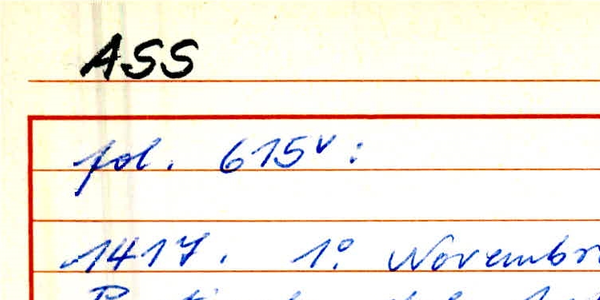 ASS
fol. 615v:
1417. 1º Novembr